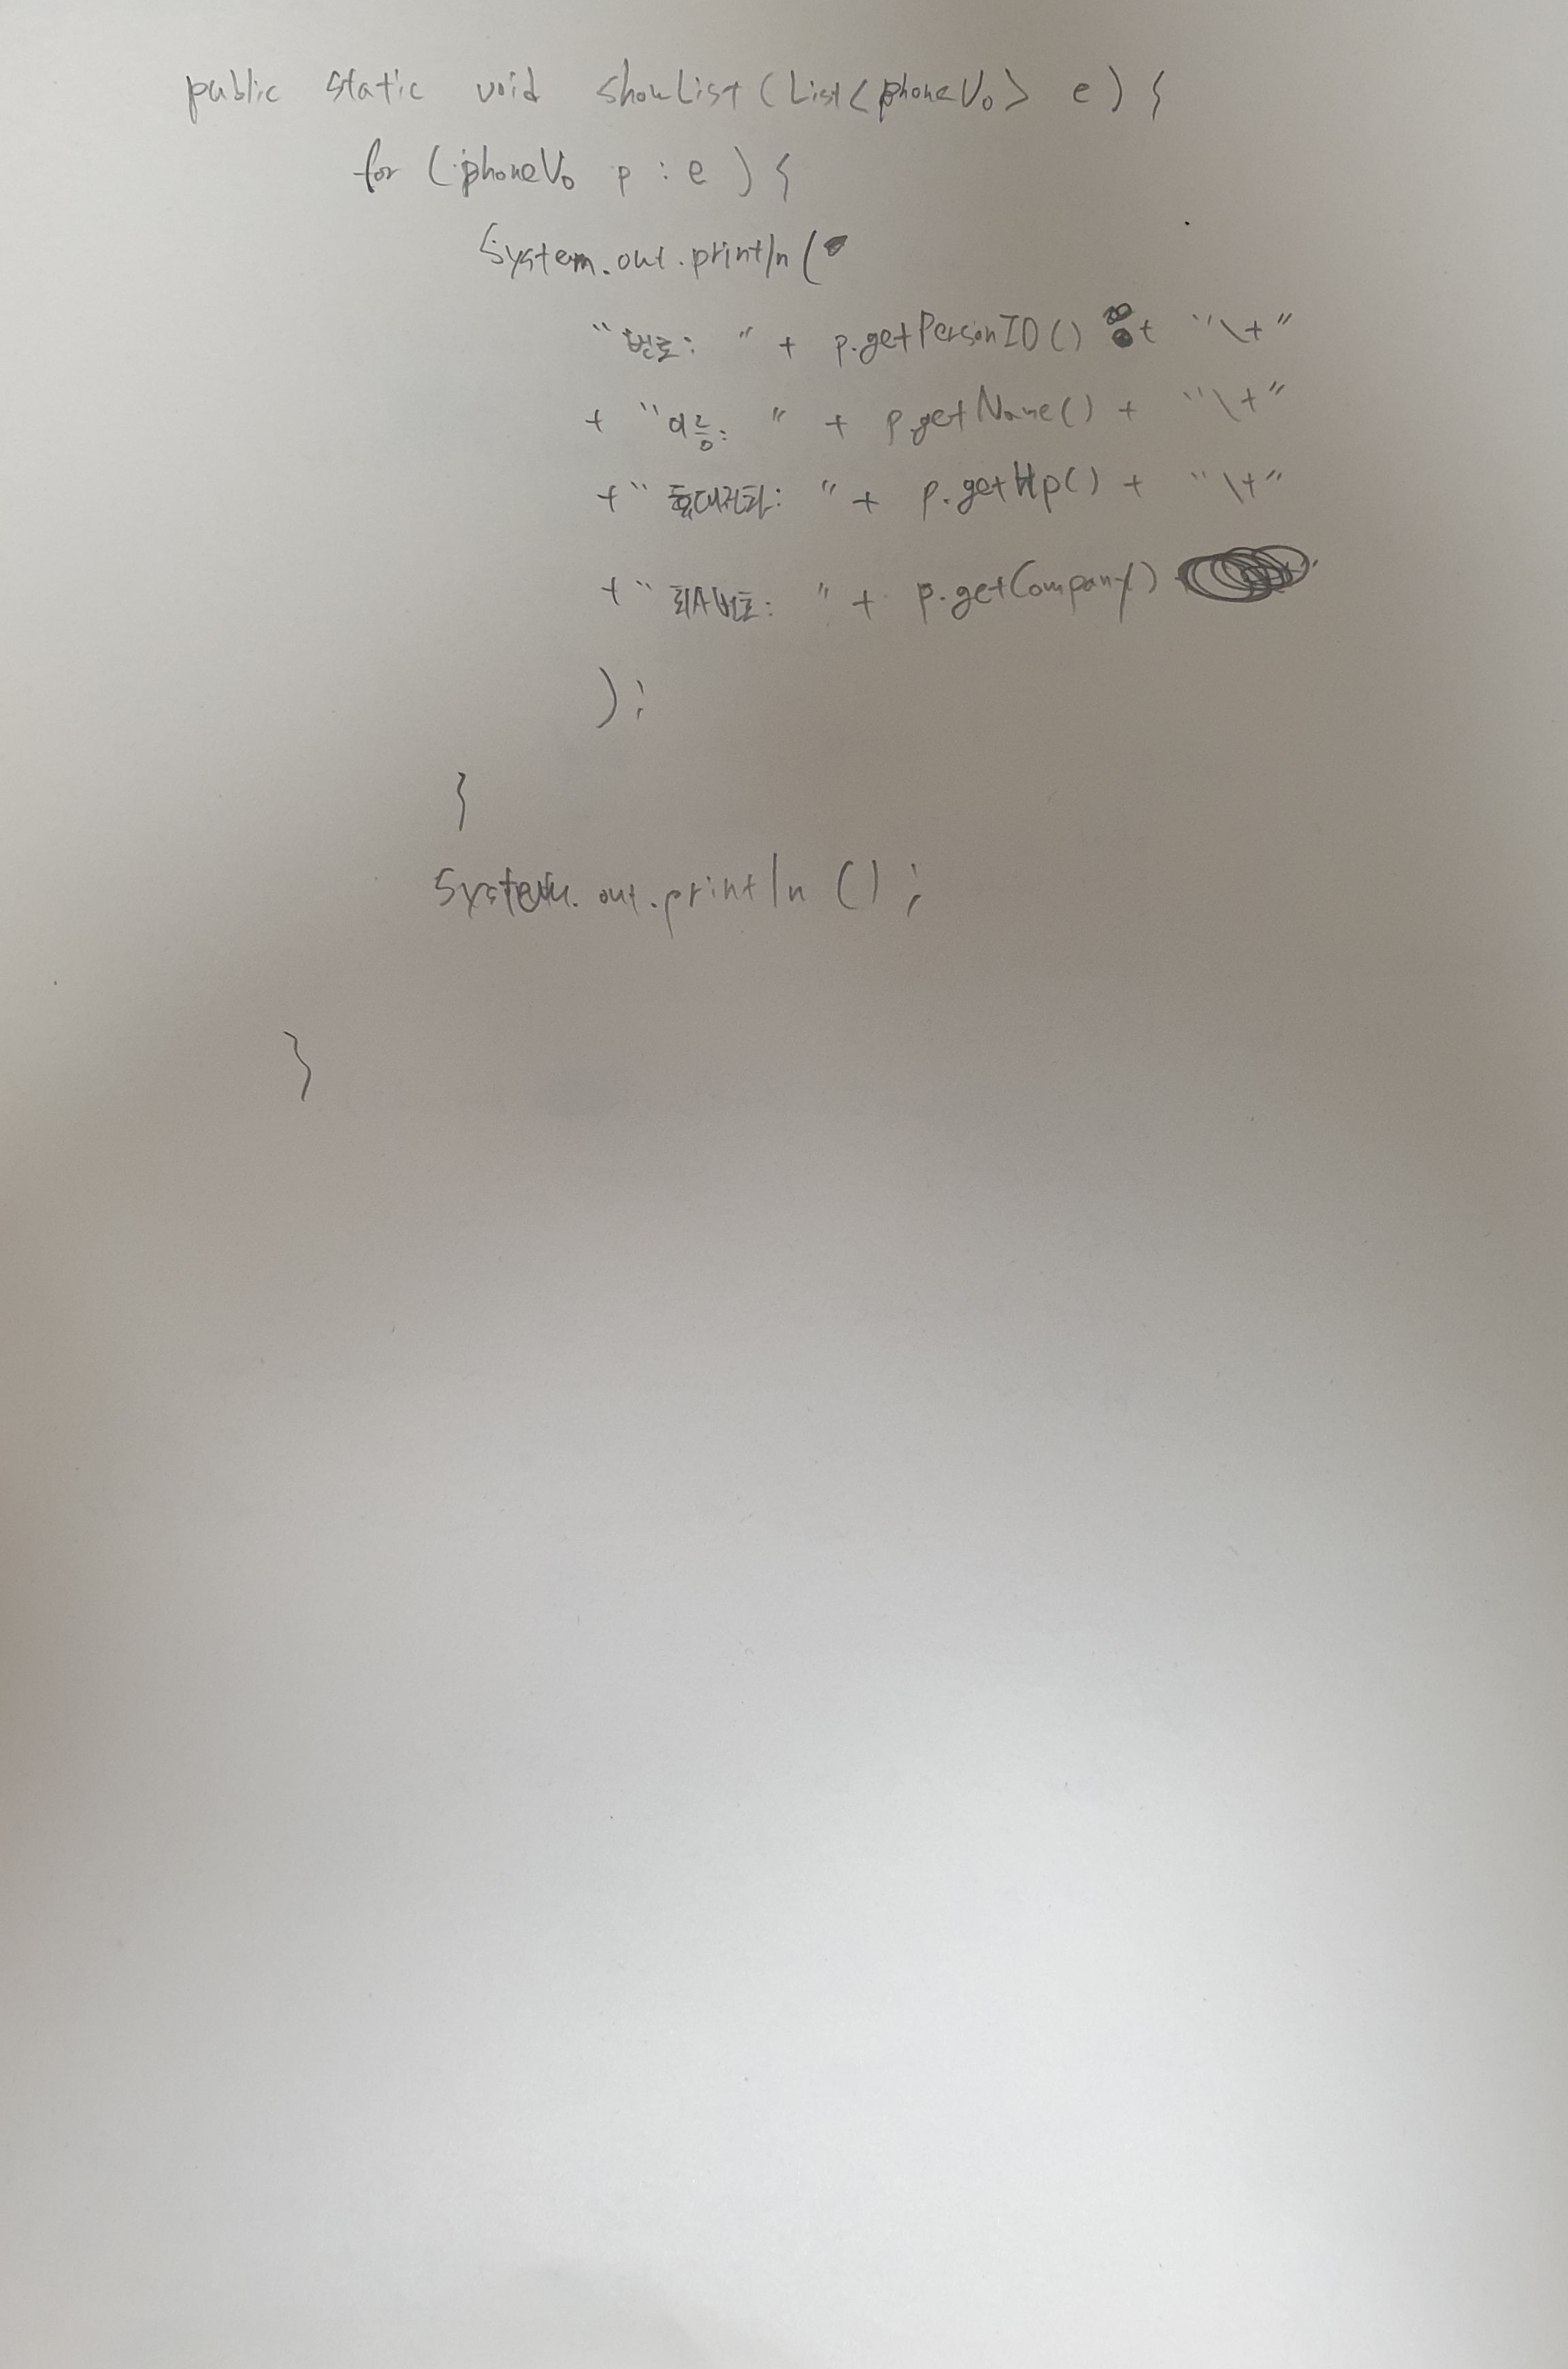 public static void showList(List<phoneVo> e) {
for (phoneVo p : e) {
System.out.println(
"번호: " + p.getPersonID() + "\t"
+ "이름: " + p.getName() + "\t"
+ "휴대전화: " + p.getHp() + "\t"
+ "회사번호: " + p.getCompany()
);
}
System.out.println();
}